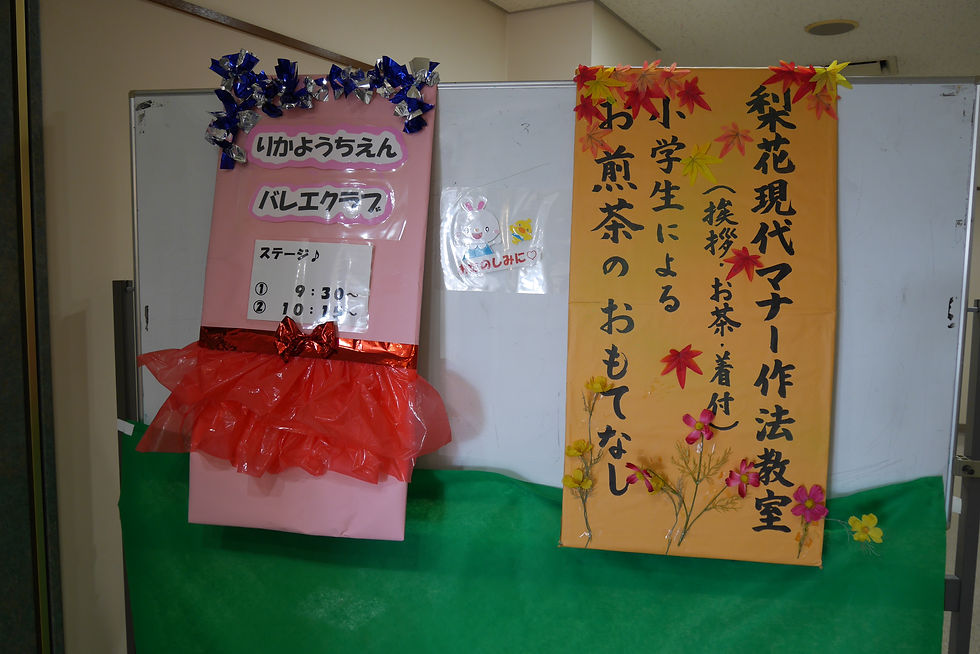 りかようちえん
バレエクラブ
ステージ♪
① 9:30~
② 10:15~
おたのしみに♡
梨花現代マナー作法教室
(挨拶・お茶・着付)
小学生による
お煎茶のおもてなし